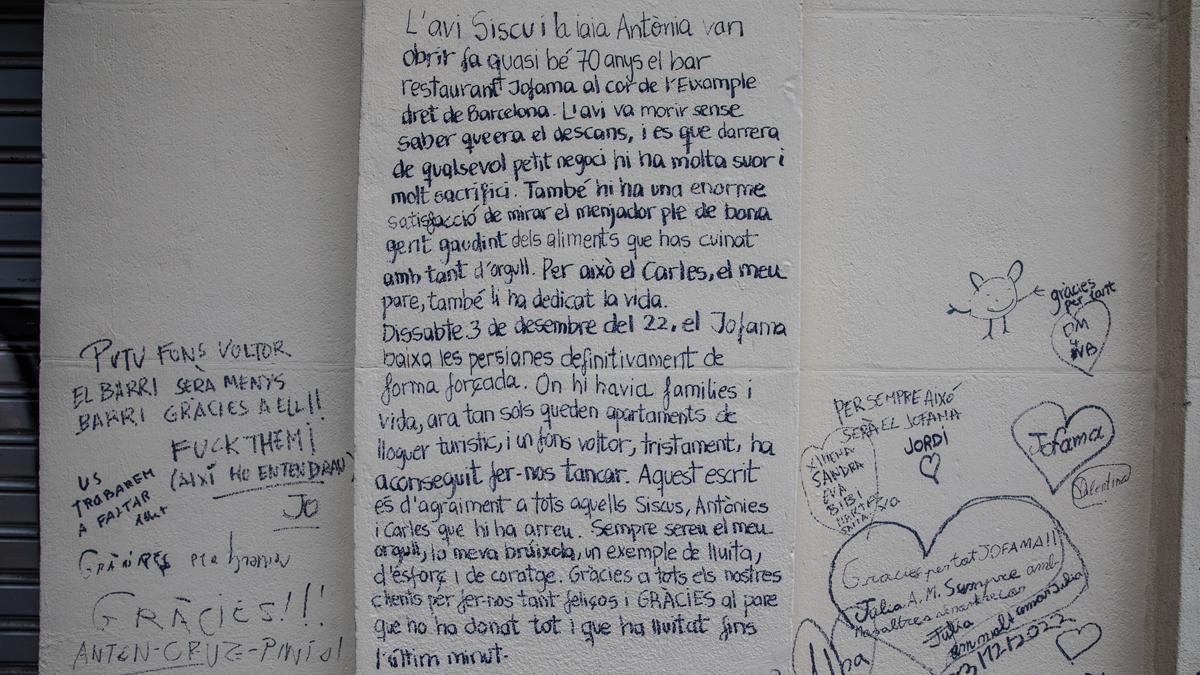 L'avi Siscu i la iaia Antònia van
obrir fa quasi bé 70 anys el bar
restaurant Jofama al cor de l'Eixample
dret de Barcelona. L'avi va morir sense
saber que era el descans, i es que darrera
de qualsevol petit negoci hi ha molta suor i
molt sacrifici. També hi ha una enorme
satisfacció de mirar el menjador ple de bona
gent gaudint dels aliments que has cuinat
amb tant d'orgull. Per això el Carles, el meu
pare, també li ha dedicat la vida.
Dissabte 3 de desembre del 22, el Jofama
baixa les persianes definitivament de
forma forçada. On hi havia families i
vida, ara tan sols queden apartaments de
lloguer turistic, i un fons voltor, tristament, ha
aconseguit fer-nos tancar. Aquest escrit
és d'agraiment a tots aquells Siscus, Antònies
i Carles que hi ha arreu. Sempre sereu el meu
orgull, la meva brúixola, un exemple de lluita,
d'esforç i de coratge. Gràcies a tots els nostres
clients per fer-nos tant feliços i GRÀCIES al pare
que ho ha donat tot i que ha lluitat fins
l'últim minut.
PUTU FONS VOLTOR
EL BARRI SERÀ MENYS
BARRI GRÀCIES A ELL!!
FUCK THEM!
(AIXÍ HO ENTENDRAN)
JO
US
TROBAREM
A FALTAR
GRÀCIES!!!
gràcies
per tant
PER SEMPRE AIXÓ
SERA EL JOFAMA
JORDI
XIMENA
SANDRA
EVA
BIBI
Jofama
Valentina
Gracies per tot JOFAMA!!
Júlia A. M. Sempre amb
Júlia
3/12/2022
Alba